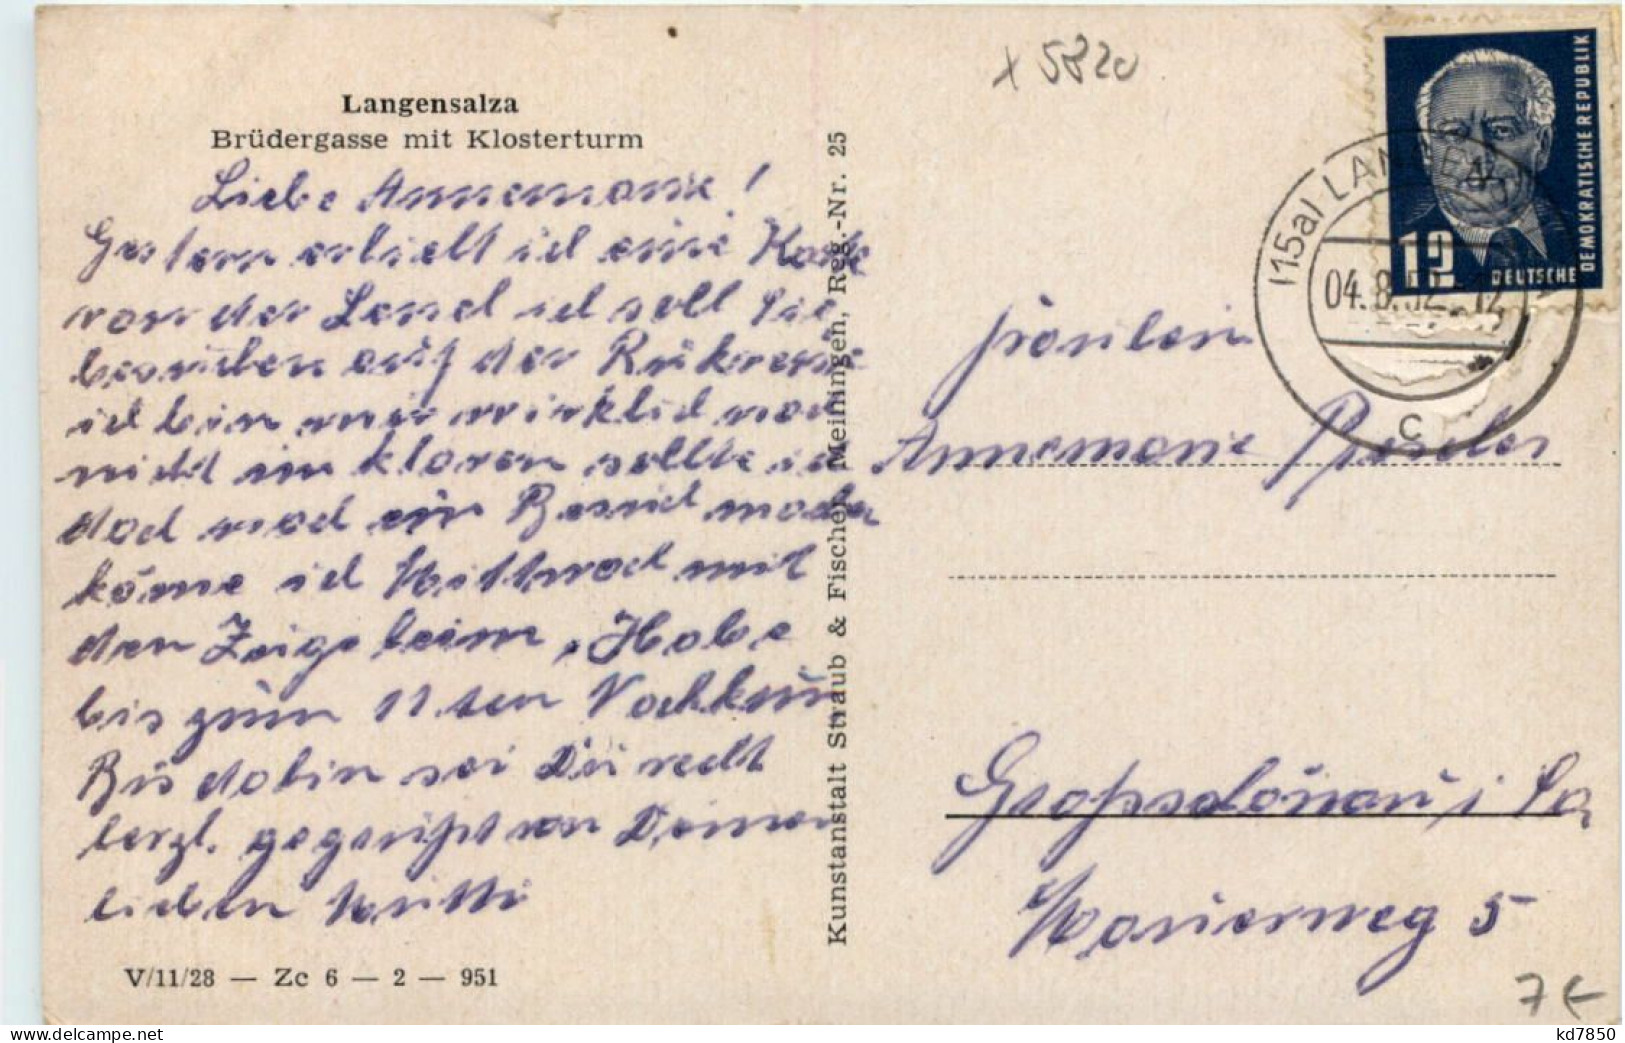 Langensalza
Brüdergasse mit Klosterturm
Liebe Annemarie!
Gestern erhielt ich eine Karte
von der ich soll Sie
besuchen auf der
ich bin mir wirklich noch
nicht im klaren sollte ich
doch noch ein Besuch machen
käme ich Mittwoch mit
den Zuge beim . Habe
bis zum 11.ten
Bis dahin sei Du recht
herzl. gegrüßt von Deinen
lieben
V/11/28 — Zc 6 — 2 — 951
Kunstanstalt Straub & Fischer, Meiningen, Reg.-Nr. 25
x 5820
DEUTSCHE DEMOKRATISCHE REPUBLIK
12
(15a) LANGENSALZA
04.8.52.-12
c
Fräulein
Annemarie
Großschönau i Sa
5
7 €
kd7850